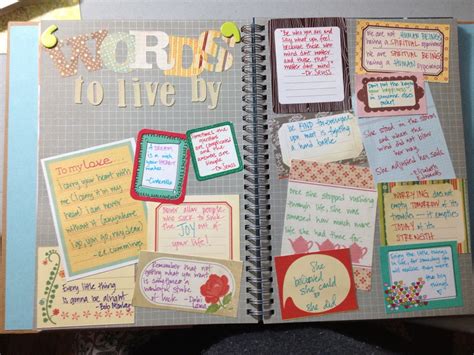 "WORDS
to live by
To my love
I carry your heart
with me
(I carry it in
my heart)
I am never
without it (anywhere
I go you go, my dear)
-e.e. cummings
Every little thing
is gonna be alright
-Bob Marley
A dream
is a wish
your heart
makes
-Cinderella
Sometimes the
questions
are complicated
and the
answers are
simple.
-Dr. Seuss
Never allow people
who suck to
suck the
JOY out of
your life!
Remember that not
getting what you
want is
sometimes a
wonderful stroke
of luck. - Dalai
Lama
"Be who you are and
say what you feel
because those who
mind don't matter
and those that
matter don't mind"
-Dr. Seuss
be KIND for everyone
you meet is fighting
a hard battle.
Once she stopped rushing
through life, she was
amazed how much more
life she had time for.
She
believed
she could
so she
did
We are not HUMAN BEINGS
having a SPIRITUAL experience
We are SPIRITUAL BEINGS
having a HUMAN experience
Don't put the keys to
your happiness
in someone else's
pocket
She stood in the storm
and when
the wind did
not blow
her way
She adjusted her sails
-Elizabeth
Edwards
WORRYING does not
empty TOMORROW of its
troubles, it empties
TODAY of its
STRENGTH
Enjoy the little things
in life, for someday
you will realize
they were the
big things